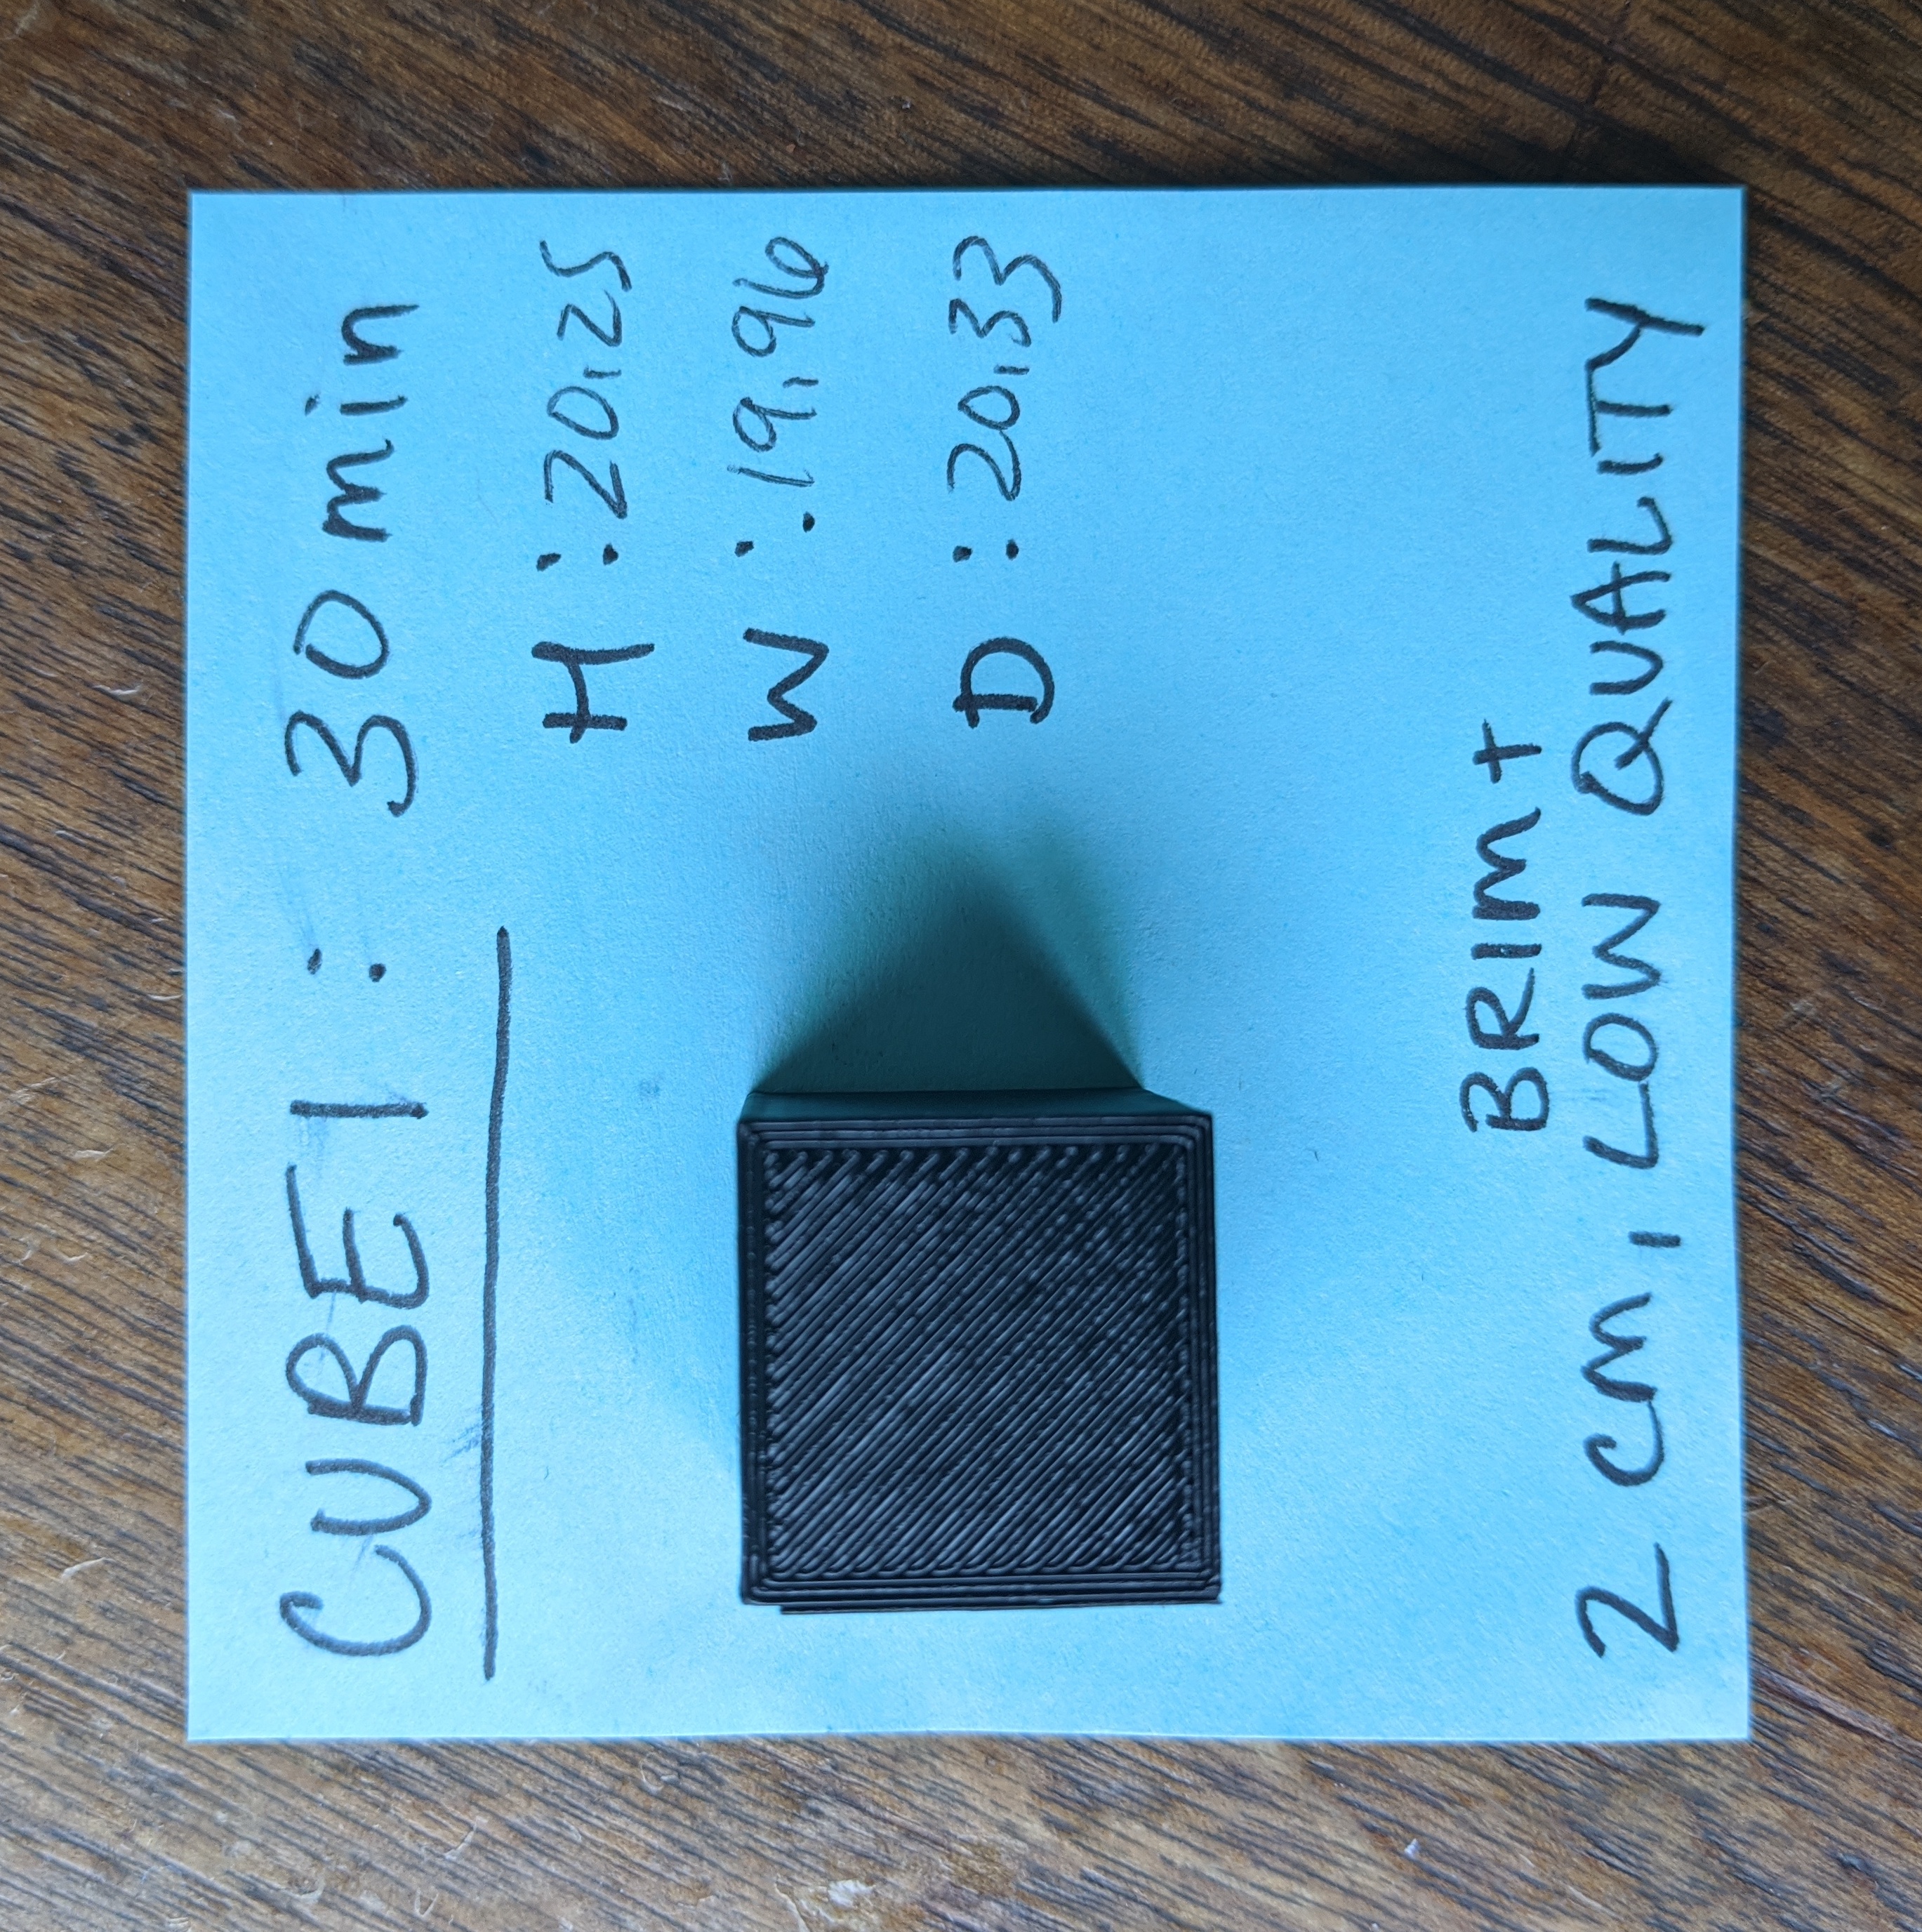 CUBE 1 : 30 min
H : 20.25
W : 19.96
D : 20.33
BRIM +
2 CM, LOW QUALITY